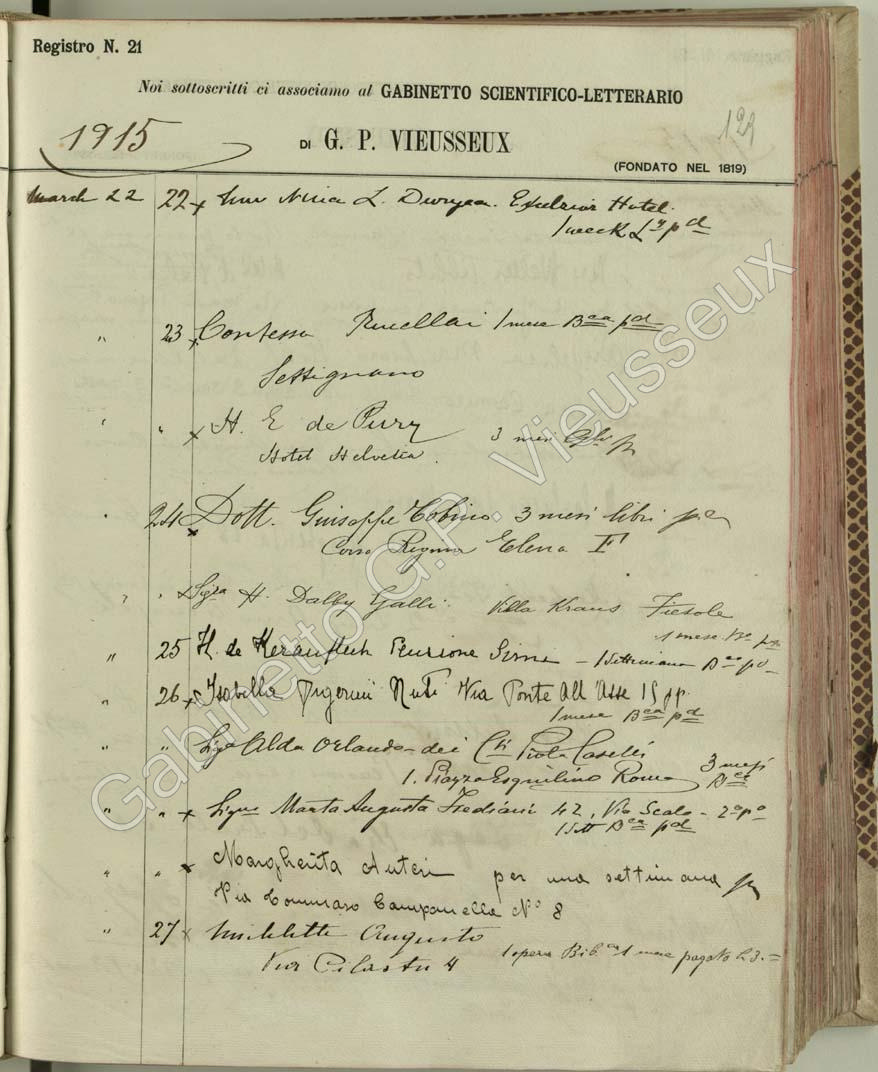 Registro N. 21
Noi sottoscritti ci associamo al GABINETTO SCIENTIFICO-LETTERARIO
129
1915
DI G. P. VIEUSSEUX
(FONDATO NEL 1819)
March 22 22 x Nina L. Duryea. Excelsior Hotel.
1 week pd
" 23 x Contessa Rucellai 1 mese Bca pd
Settignano
" " x H. E de Pury 3 mesi
Hotel Helvetia.
" 24 x Dott. Giuseppe Tobino 3 mesi libri
Corso Regina Elena
" " x Sigra H. Dalby Galli. Villa Kraus Fiesole
1 mese
" 25 H. de Pensione - 1 settimana Bca pd
" 26 x Isabella Nuti Via Ponte All'Asse 15 pp.
1 mese Bca pd
" " Alda Orlando dei Cti Piola Caselli 3 mesi
1. Piazza Esquilino Roma
" " x Marta Augusta Frediani 42, Via Scala - 2º pº
1 sett Bca pd
" " x Margherita Auteri per una settimana
Via Tommaso Campanella Nº 8
" 27 x Augusto
Via Pilastri 4 1 opera 1 mese pagato L 3. =
Gabinetto G.P. Vieusseux